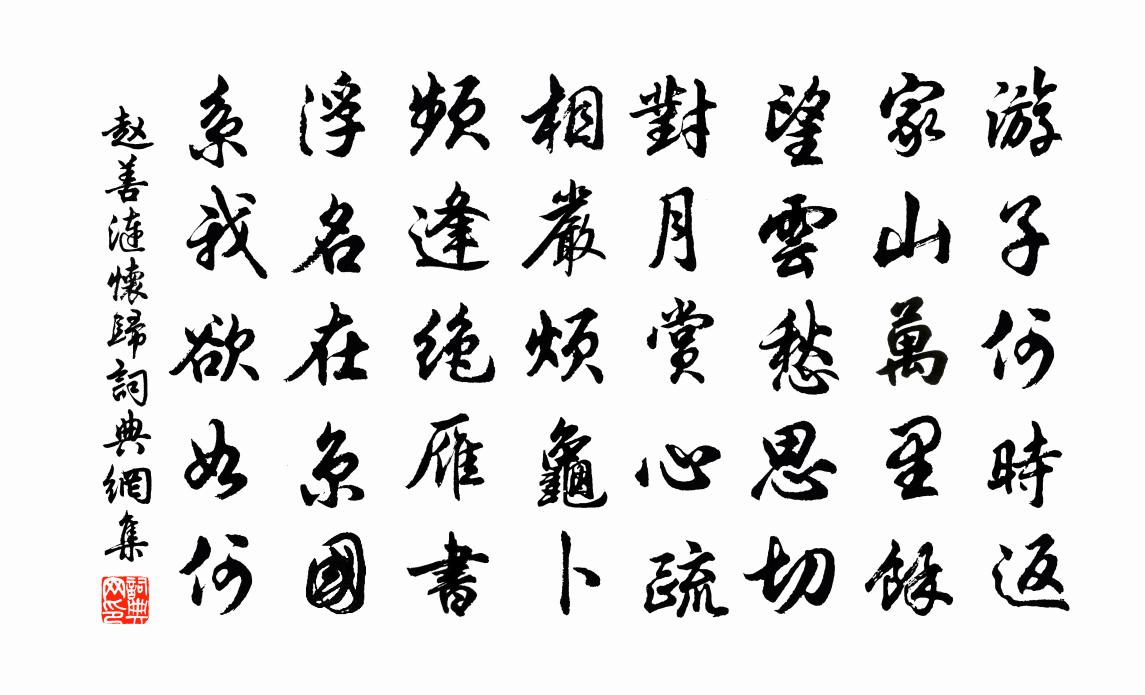 游子何時返
家山萬里餘
望雲愁思切
對月賞心疏
相嚴煩龜卜
頻逢絶雁書
浮名在京國
系我欲如何
赵善漣懷歸詞典網集
詞典网印